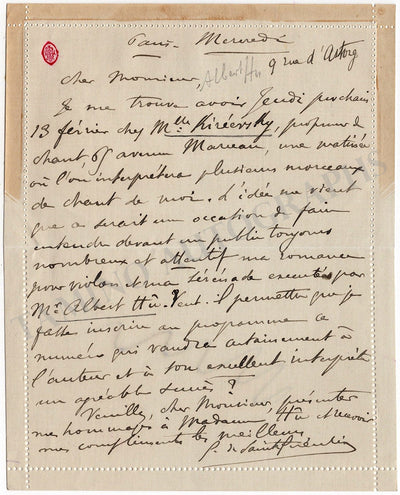 Paris - Mercredi
9 rue d'Astorg
Cher Monsieur,
Je me trouve avoir Jeudi prochain
13 février chez Mlle Kiréevsky, professeur de
chant, 65 avenue Marceau, une matinée
où l'on interprétera plusieurs morceaux
de chant de moi. L'idée me vient
que ce serait une occasion de faire
entendre devant un public toujours
nombreux et attentif ma romance
pour violon et ma Sérénade executées par
Mr. Albert Hü. Veut-il permettre que je
fasse inscrire au programme ce
numéro qui vaudra certainement à
l'auteur et à son excellent interprète
un agréable succès ?
Veuillez, cher Monsieur, présenter
mes hommages à Madame Hü et recevoir
mes compliments les meilleurs
G. de Saint Quentin